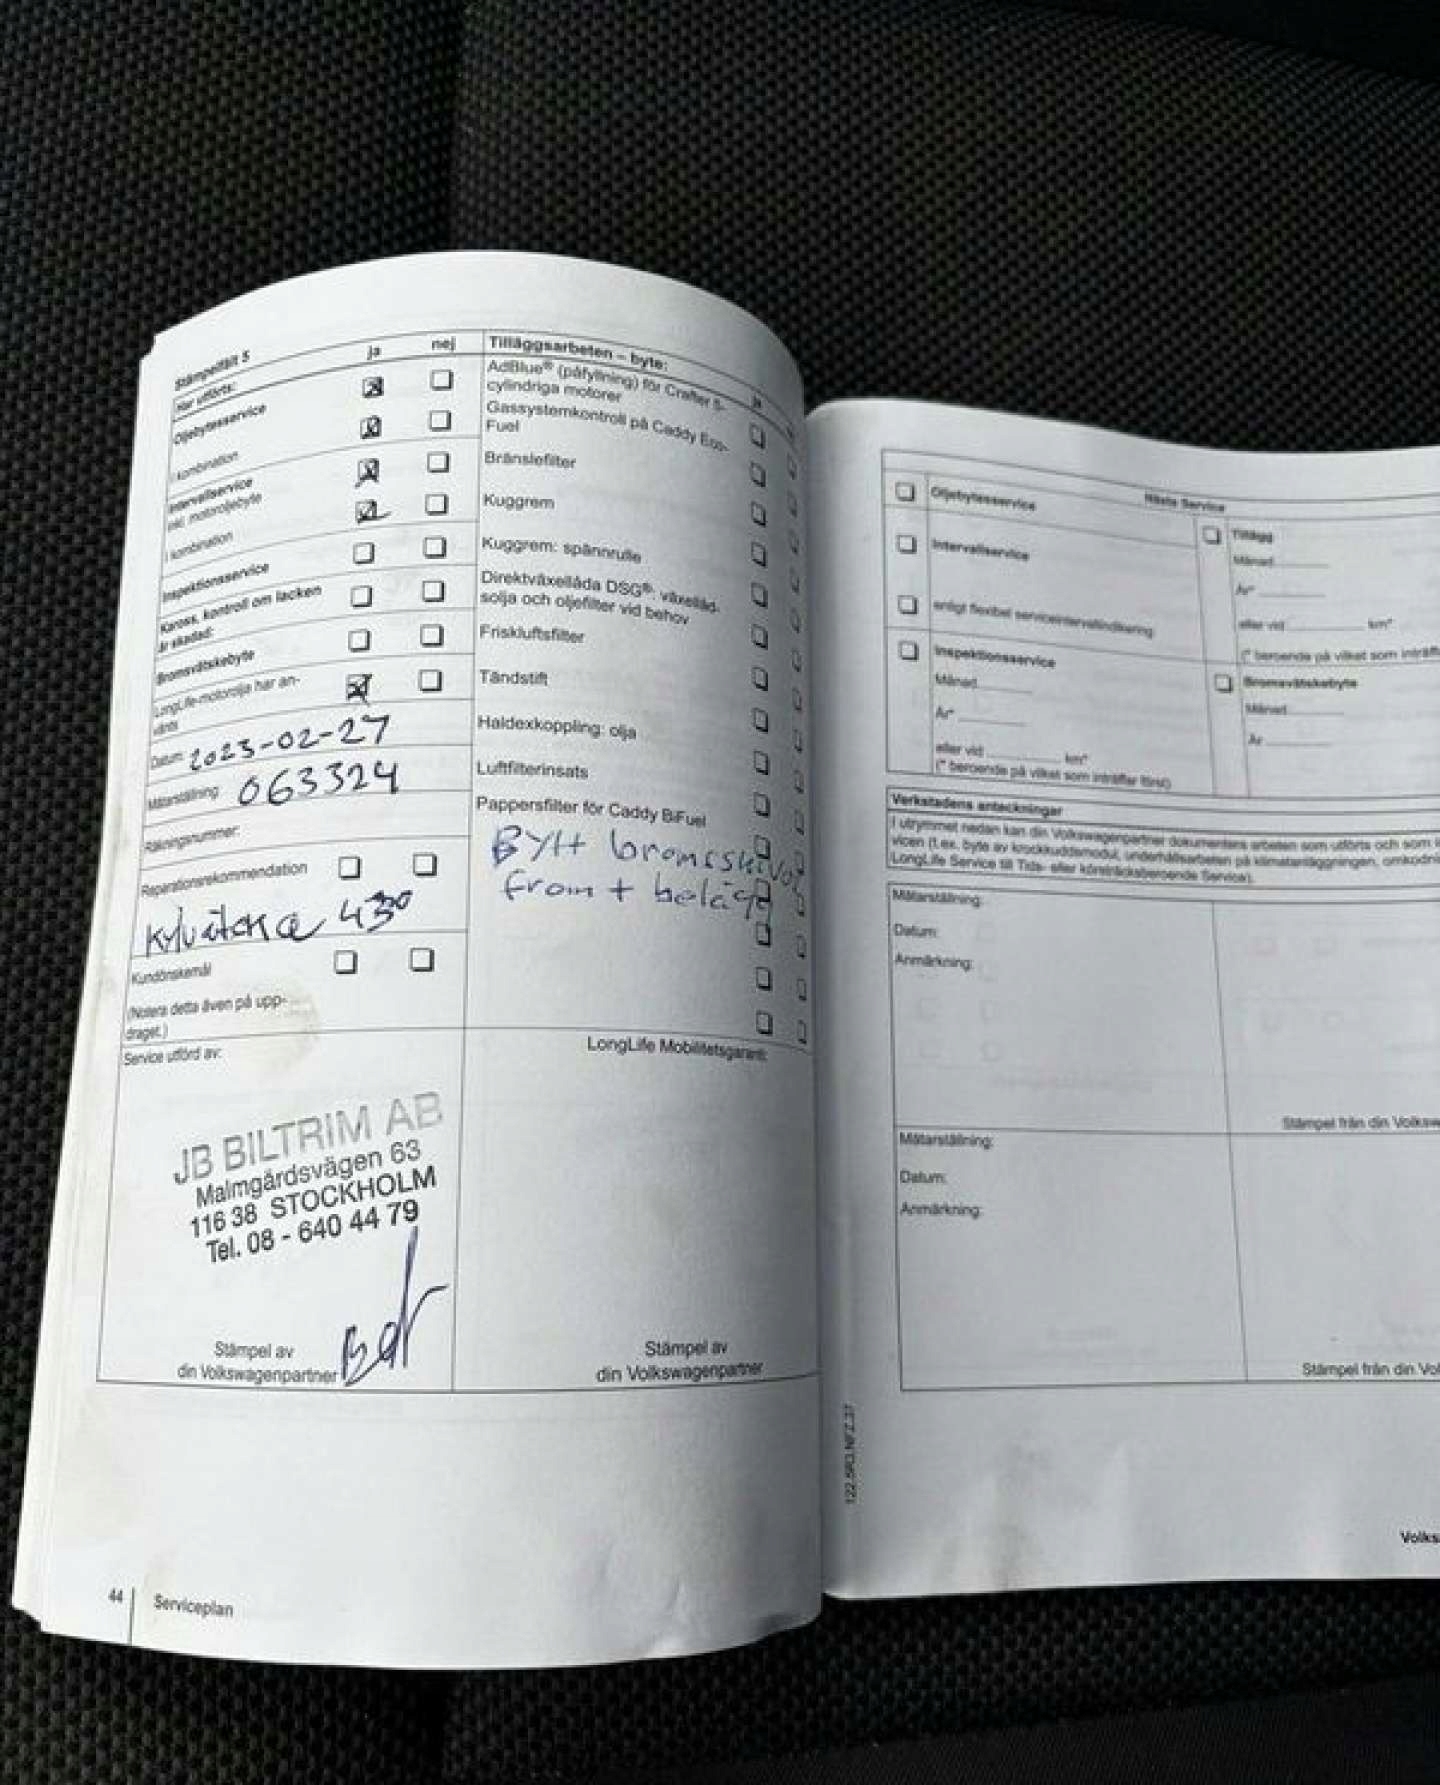 Stämpelfält 5
Har utförts:
ja
nej
Oljebytesservice
I kombination
Intervallservice
inkl. motoroljebyte
I kombination
Inspektionsservice
Kaross, kontroll om lacken
är skadad:
Bromsvätskebyte
LongLife-motorolja har an-
vänts
Datum: 2023-02-27
Mätarställning: 063324
Räkningsnummer:
Reparationsrekommendation
Kylvätska 430
Kundönskemål
(Notera detta även på upp-
draget.)
Service utförd av:
JB BILTRIM AB
Malmgårdsvägen 63
116 38 STOCKHOLM
Tel. 08 - 640 44 79
Stämpel av
din Volkswagenpartner
Tilläggsarbeten – byte:
ja
AdBlue® (påfyllning) för Crafter 5-
cylindriga motorer
Gassystemkontroll på Caddy Eco-
Fuel
Bränslefilter
Kuggrem
Kuggrem: spännrulle
Direktväxellåda DSG®: växelläd-
solja och oljefilter vid behov
Friskluftsfilter
Tändstift
Haldexkoppling: olja
Luftfilterinsats
Pappersfilter för Caddy BiFuel
Bytt bromsskivor
from + belägg
LongLife Mobilitetsgaranti:
Stämpel av
din Volkswagenpartner
44
Serviceplan
Nästa Service
Oljebytesservice
Intervallservice
enligt flexibel serviceintervallindikering
Inspektionsservice
Månad
År*
eller vid km*
(* beroende på vilket som inträffar först)
Tillägg
Månad
År*
eller vid km*
(* beroende på vilket som inträffa
Bromsvätskebyte
Månad
År
Verkstadens anteckningar
I utrymmet nedan kan din Volkswagenpartner dokumentera arbeten som utförts och som i
vicen (t.ex. byte av krockkuddemodul, underhållsarbeten på klimatanläggningen, omkodni
LongLife Service till Tids- eller körsträcksberoende Service).
Mätarställning:
Datum:
Anmärkning:
Stämpel från din Volksw
Mätarställning:
Datum:
Anmärkning:
Stämpel från din Vol
122.5R3.NFZ.37
Volks